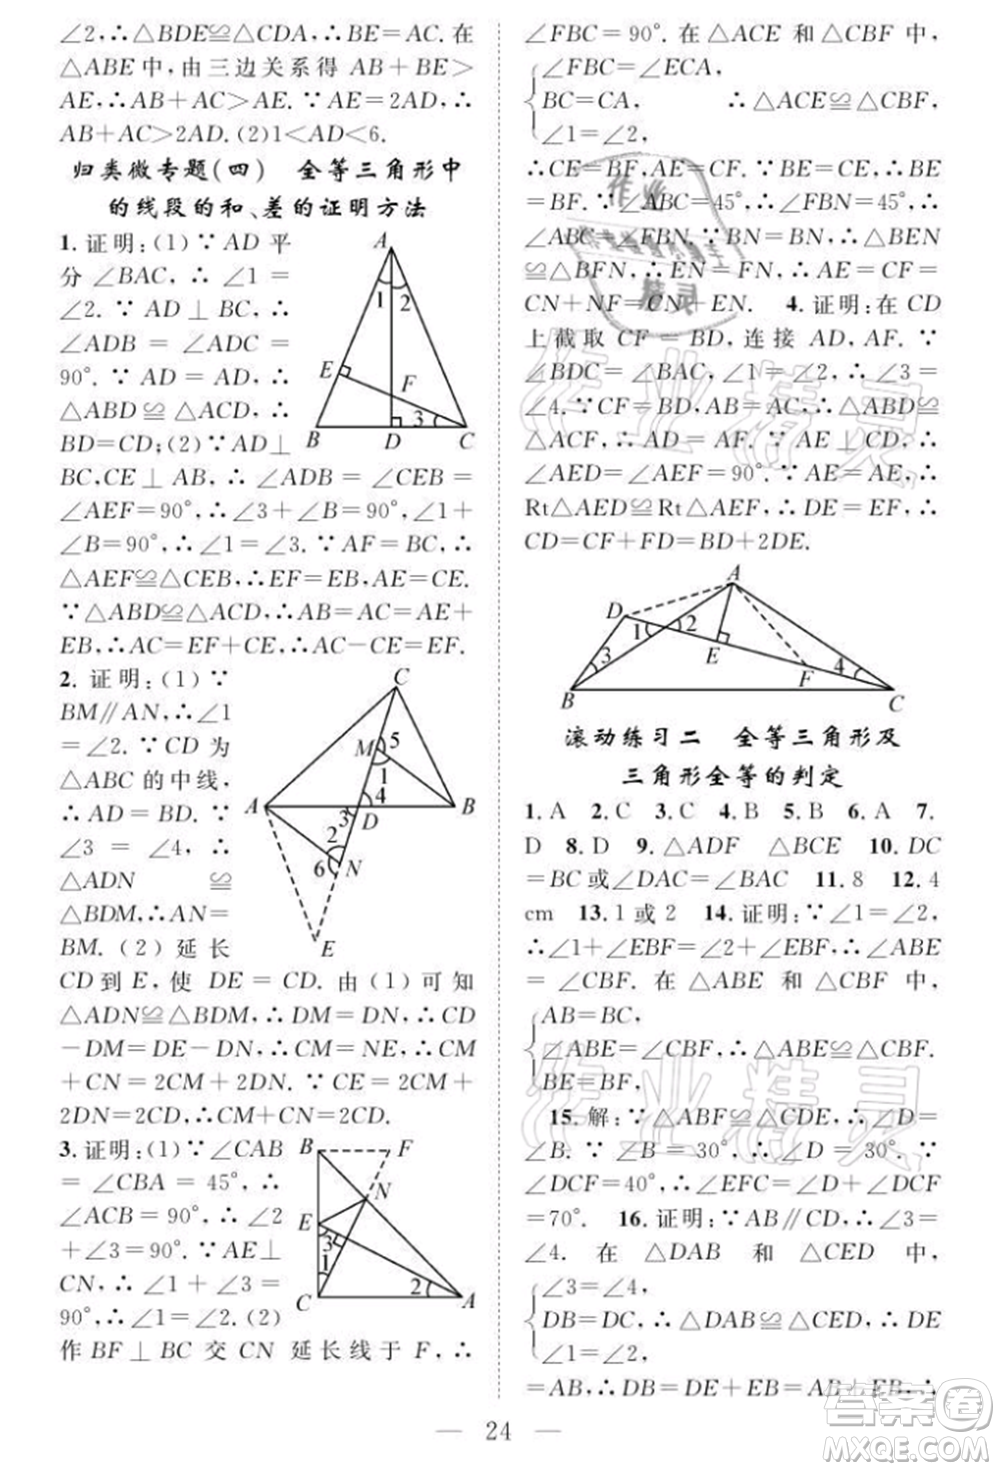 ∠2,∴△BDE≌△CDA,∴BE=AC.在
△ABE中,由三边关系得 AB+BE>
AE,∴AB+AC>AE.∵AE=2AD,∴
AB+AC>2AD.(2)1<AD<6.
归类微专题(四) 全等三角形中
的线段的和、差的证明方法
1.证明:(1)∵AD平
分∠BAC,∴∠1=
∠2.∵AD⊥BC,∴
∠ADB=∠ADC=
90°.∵AD=AD,∴
△ABD≌△ACD,∴
BD=CD;(2)∵AD⊥
BC,CE⊥AB,∴∠ADC=∠CEB=
∠AEF=90°,∴∠3+∠B=∠1+
∠B=90°,∴∠1=∠3.∵AF=BC,∴
△AEF≌△CEB,∴EF=EB,AE=CE.
∵△ABD≌△ACD,∴AC=AB=AE+
EB,∴AC=EF+CE,∴AC-CE=EF.
A
1
2
E
F
3
B
D
C
2.证明:(1)∵
BM∥AN,∴∠1
=∠2.∵CD为
△ABC的中线,
∴AD=BD.∵
∠3=∠4,∴
△ADN≌
△BDM,∴AN=
BM.(2)延长
CD到E,使DE=CD.由(1)可知
△ADN≌△BDM,∴DM=DN,∴CD
-DM=DE-DN,∴CM=NE,∴CM
+CM+2DN=CM+NE+2DN,∴CE
=2CM+2DN.∵CE=2CD,∴2CM+
2DN=2CD,∴CM+DN=CD.
C
M
5
1
4
A
3
D
B
2
6
N
E
3.证明:(1)∵∠CAB
=∠CBA=45°,∴
∠ACB=90°,∴∠2
+∠3=90°.∵AE⊥
CN,∴∠1+∠3=
90°,∴∠1=∠2.(2)
作BF⊥BC交CN延长线于F,∴
B
F
N
E
3
1
2
C
A
∠FBC=90°.在△ACE和△CBF中,
∠FBC=∠ECA,
BC=CA, ∴△ACE≌△CBF,
∠1=∠2,
∴CE=BF,AE=CF.∵CE=BE,∴
BF=BE.∵∠ABC=45°,∴∠FBN=45°,
∴∠ABC=∠FBN.∵BN=BN,∴△BEN
≌△BFN,∴EN=FN,∴AE=CF=
CN+NF=CN+EN. 4.证明:在CD
上截取CF=BD,连接AD,AF.∵
∠BDC=∠BAC,∠1=∠2,∴∠3=
∠4.∵CF=BD,AB=AC,∴△ABD≌
△ACF,∴AD=AF.∵AE⊥CD,∴
∠AED=∠AEF=90°.∵AE=AE,∴
Rt△AED≌Rt△AEF,∴DE=EF,∴
CD=CF+FD=BD+2DE.
A
D
1
2
E
3
F
4
B
C
滚动练习二 全等三角形及
三角形全等的判定
1.A 2.C 3.C 4.B 5.B 6.A 7.
D 8.D 9.△ADF △BCE 10.DC
=BC或∠DAC=∠BAC 11.8 12.4
cm 13.1或2 14.证明:∵∠1=∠2,
∴∠1+∠EBF=∠2+∠EBF,∴∠ABE
=∠CBF.在△ABE和△CBF中,
AB=BC,
∠ABE=∠CBF,∴△ABE≌△CBF.
BE=BF,
15.解:∵△ABF≌△CDE,∴∠D=
∠B.∵∠B=30°,∴∠D=30°.∵
∠DCF=40°,∴∠EFC=∠D+∠DCF
=70°. 16.证明:∵AB∥CD,∴∠3=
∠4.在△DAB和△CED中,
∠3=∠4,
DB=DC,∴△DAB≌△CED,∴DE
∠1=∠2,
=AB,∴DB=DE+EB=AB+EB.
24
作业精灵
作业精灵
作业
精灵
答案圈
MXQE.COM